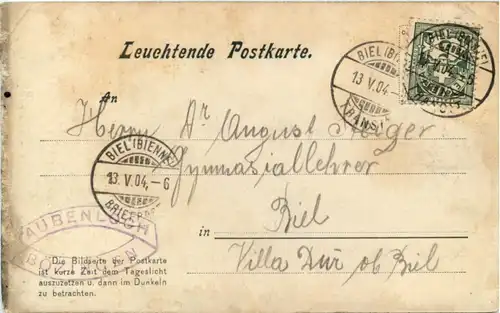 Leuchtende Postkarte.
BIEL (BIENNE)
13.V.04.
TRANSIT
An
Herrn Dr August
BIEL (BIENNE)
13.V.04.–6
Gymnasiallehrer
in Biel
Villa Dür ob Biel
TAUBENLOCH
Die Bildseite der Postkarte
ist kurze Zeit dem Tageslicht
auszuzetzen u. dann im Dunkeln
zu betrachten.